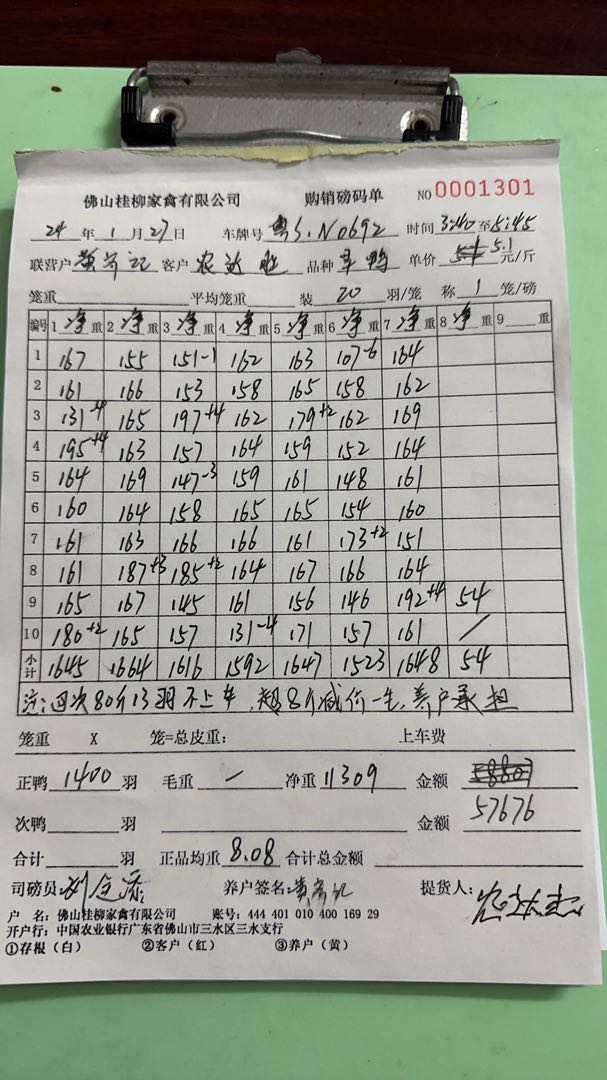 佛山桂柳家禽有限公司 购销磅码单 NO 0001301
24年1月27日 车牌号 粤S.N0692 时间 3:40至5:45
联营户 客户 农 品种 鸭 单价 5.1 元/斤
笼重 平均笼重 装 20 羽/笼 称 1 笼/磅
编号 1 净重 2 净重 3 净重 4 净重 5 净重 6 净重 7 净重 8 净重 9 重
1 167 155 151-1 162 163 107-6 164
2 161 166 153 158 165 158 162
3 131-4 165 197+4 162 179+2 162 169
4 195+4 163 157 164 159 152 164
5 164 169 147-3 159 161 148 161
6 160 164 158 165 165 154 160
7 161 163 166 166 161 173+2 151
8 161 187+3 185+2 164 167 166 164
9 165 167 145 161 156 146 192+4 54
10 180+2 165 157 131-4 171 157 161 /
小计 1645 1664 1616 1592 1647 1523 1648 54
注:因次80斤13羽不上车,超8斤减价一生,养户承担
笼重 X 笼=总皮重: 上车费
正鸭 1400 羽 毛重 / 净重 11309 金额
57676
次鸭 羽 金额
合计 羽 正品均重 8.08 合计总金额
司磅员: 养户签名: 提货人:
户 名:佛山桂柳家禽有限公司 账号:444 401 010 400 169 29
开户行:中国农业银行广东省佛山市三水区三水支行
①存根(白) ②客户(红) ③养户(黄)